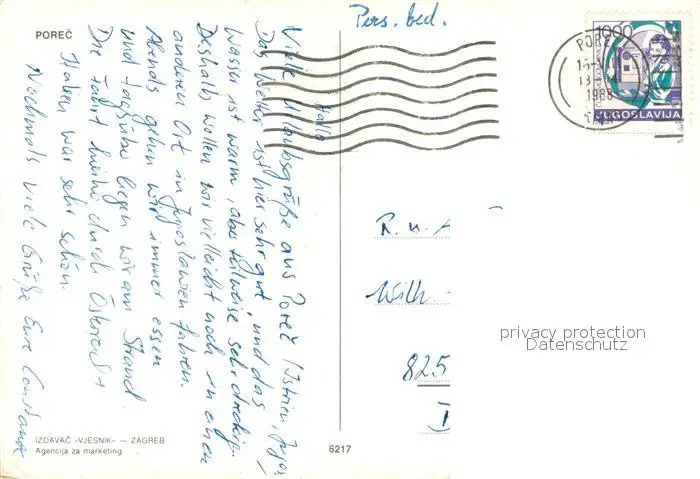 POREČ
Pers. bed.
Hallo
Viele Urlaubsgrüße aus Poreč (Istrien, Jugos
Das Wetter ist hier sehr gut und das
Wasser ist warm, aber teilweise sehr dreckig.
Deshalb wollen wir vielleicht noch in einen
anderen Ort in Jugoslawien fahren.
Abends gehen wir immer essen
und tagsüber liegen wir am Strand.
Die Fahrt hierhin durch Österreich +
Italien war sehr schön.
Nochmals viele Grüße Eure Constanze
IZDAVAČ »VJESNIK« — ZAGREB
Agencija za marketing
6217
1000
JUGOSLAVIJA
PORE
1988
R. u. A
Wilh
825
privacy protection
Datenschutz